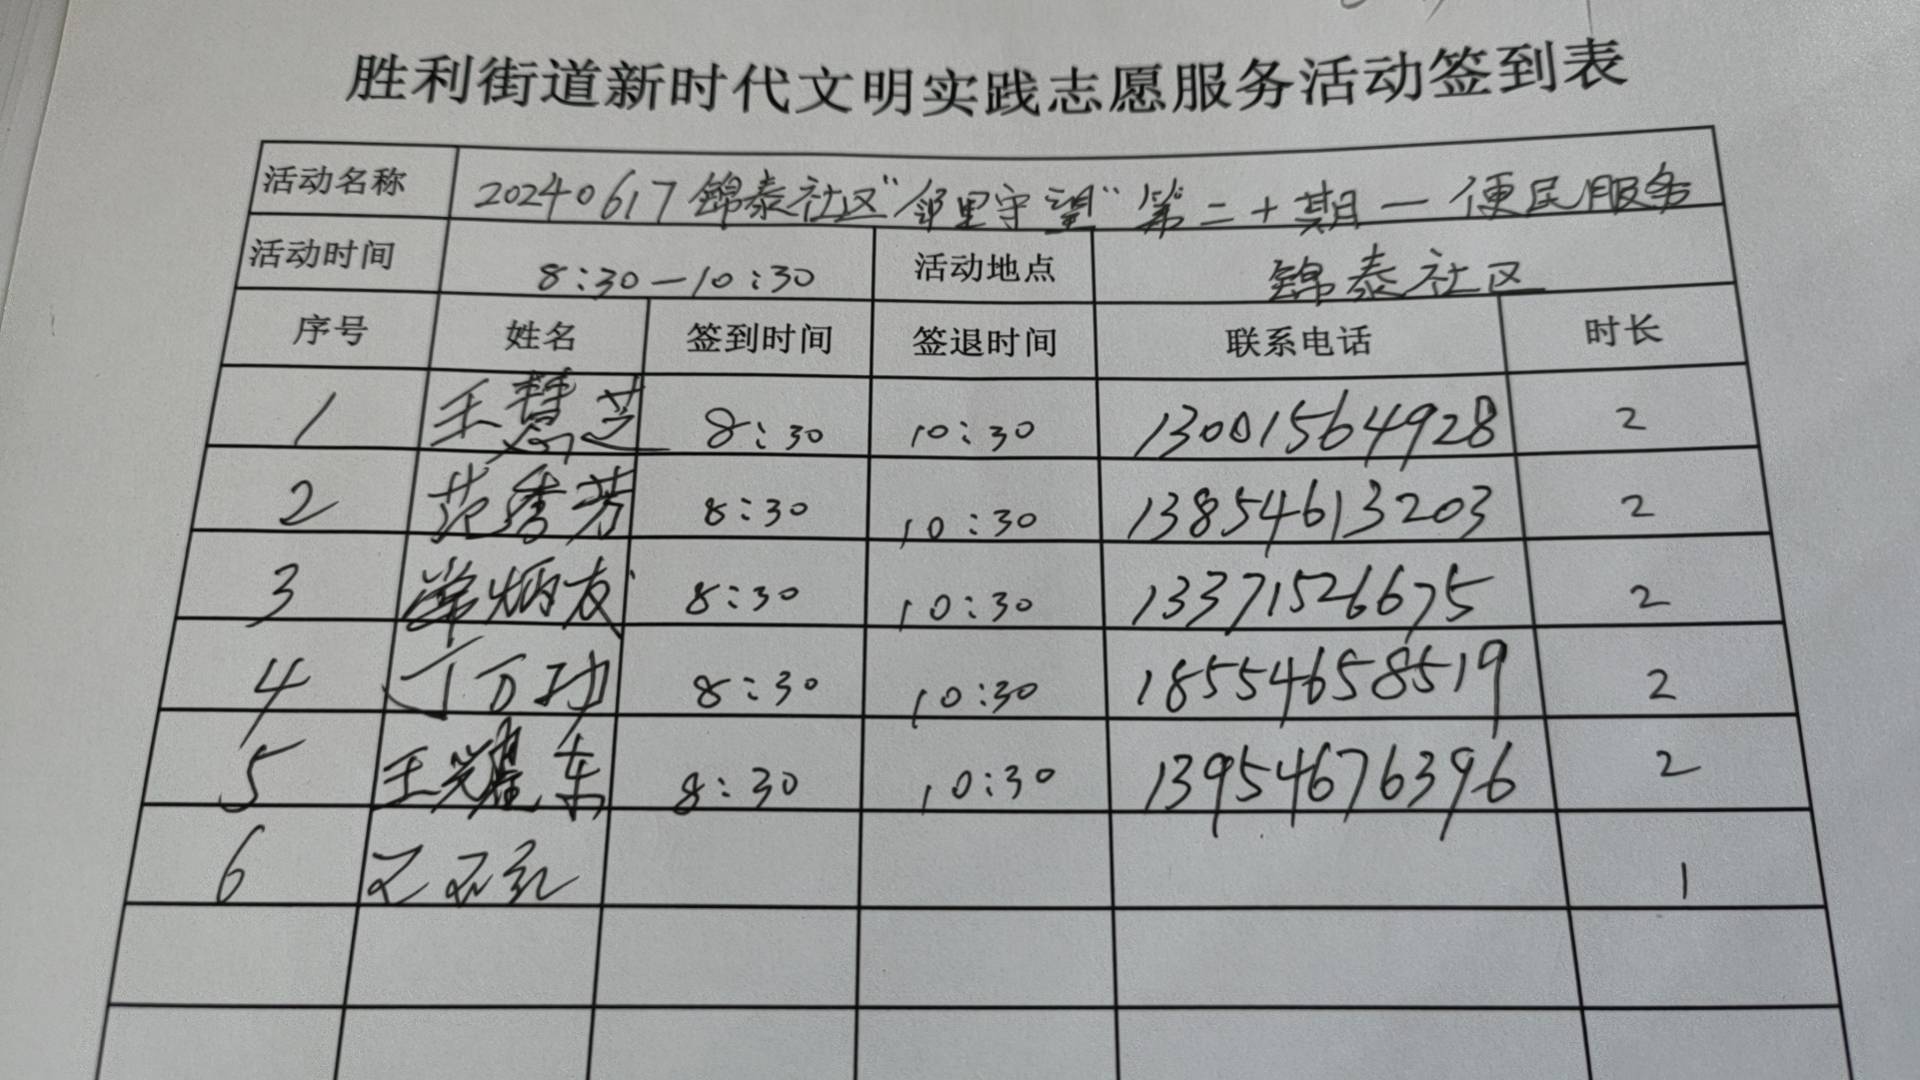 胜利街道新时代文明实践志愿服务活动签到表
活动名称 20240617锦泰社区“邻里守望”第二十期一便民服务
活动时间 8:30—10:30 活动地点 锦泰社区
序号 姓名 签到时间 签退时间 联系电话 时长
1 王慧芝 8:30 10:30 13001564928 2
2 范秀芳 8:30 10:30 13854613203 2
3 8:30 10:30 13371526675 2
4 8:30 10:30 18554658519 2
5 王耀东 8:30 10:30 13954676396 2
6 1